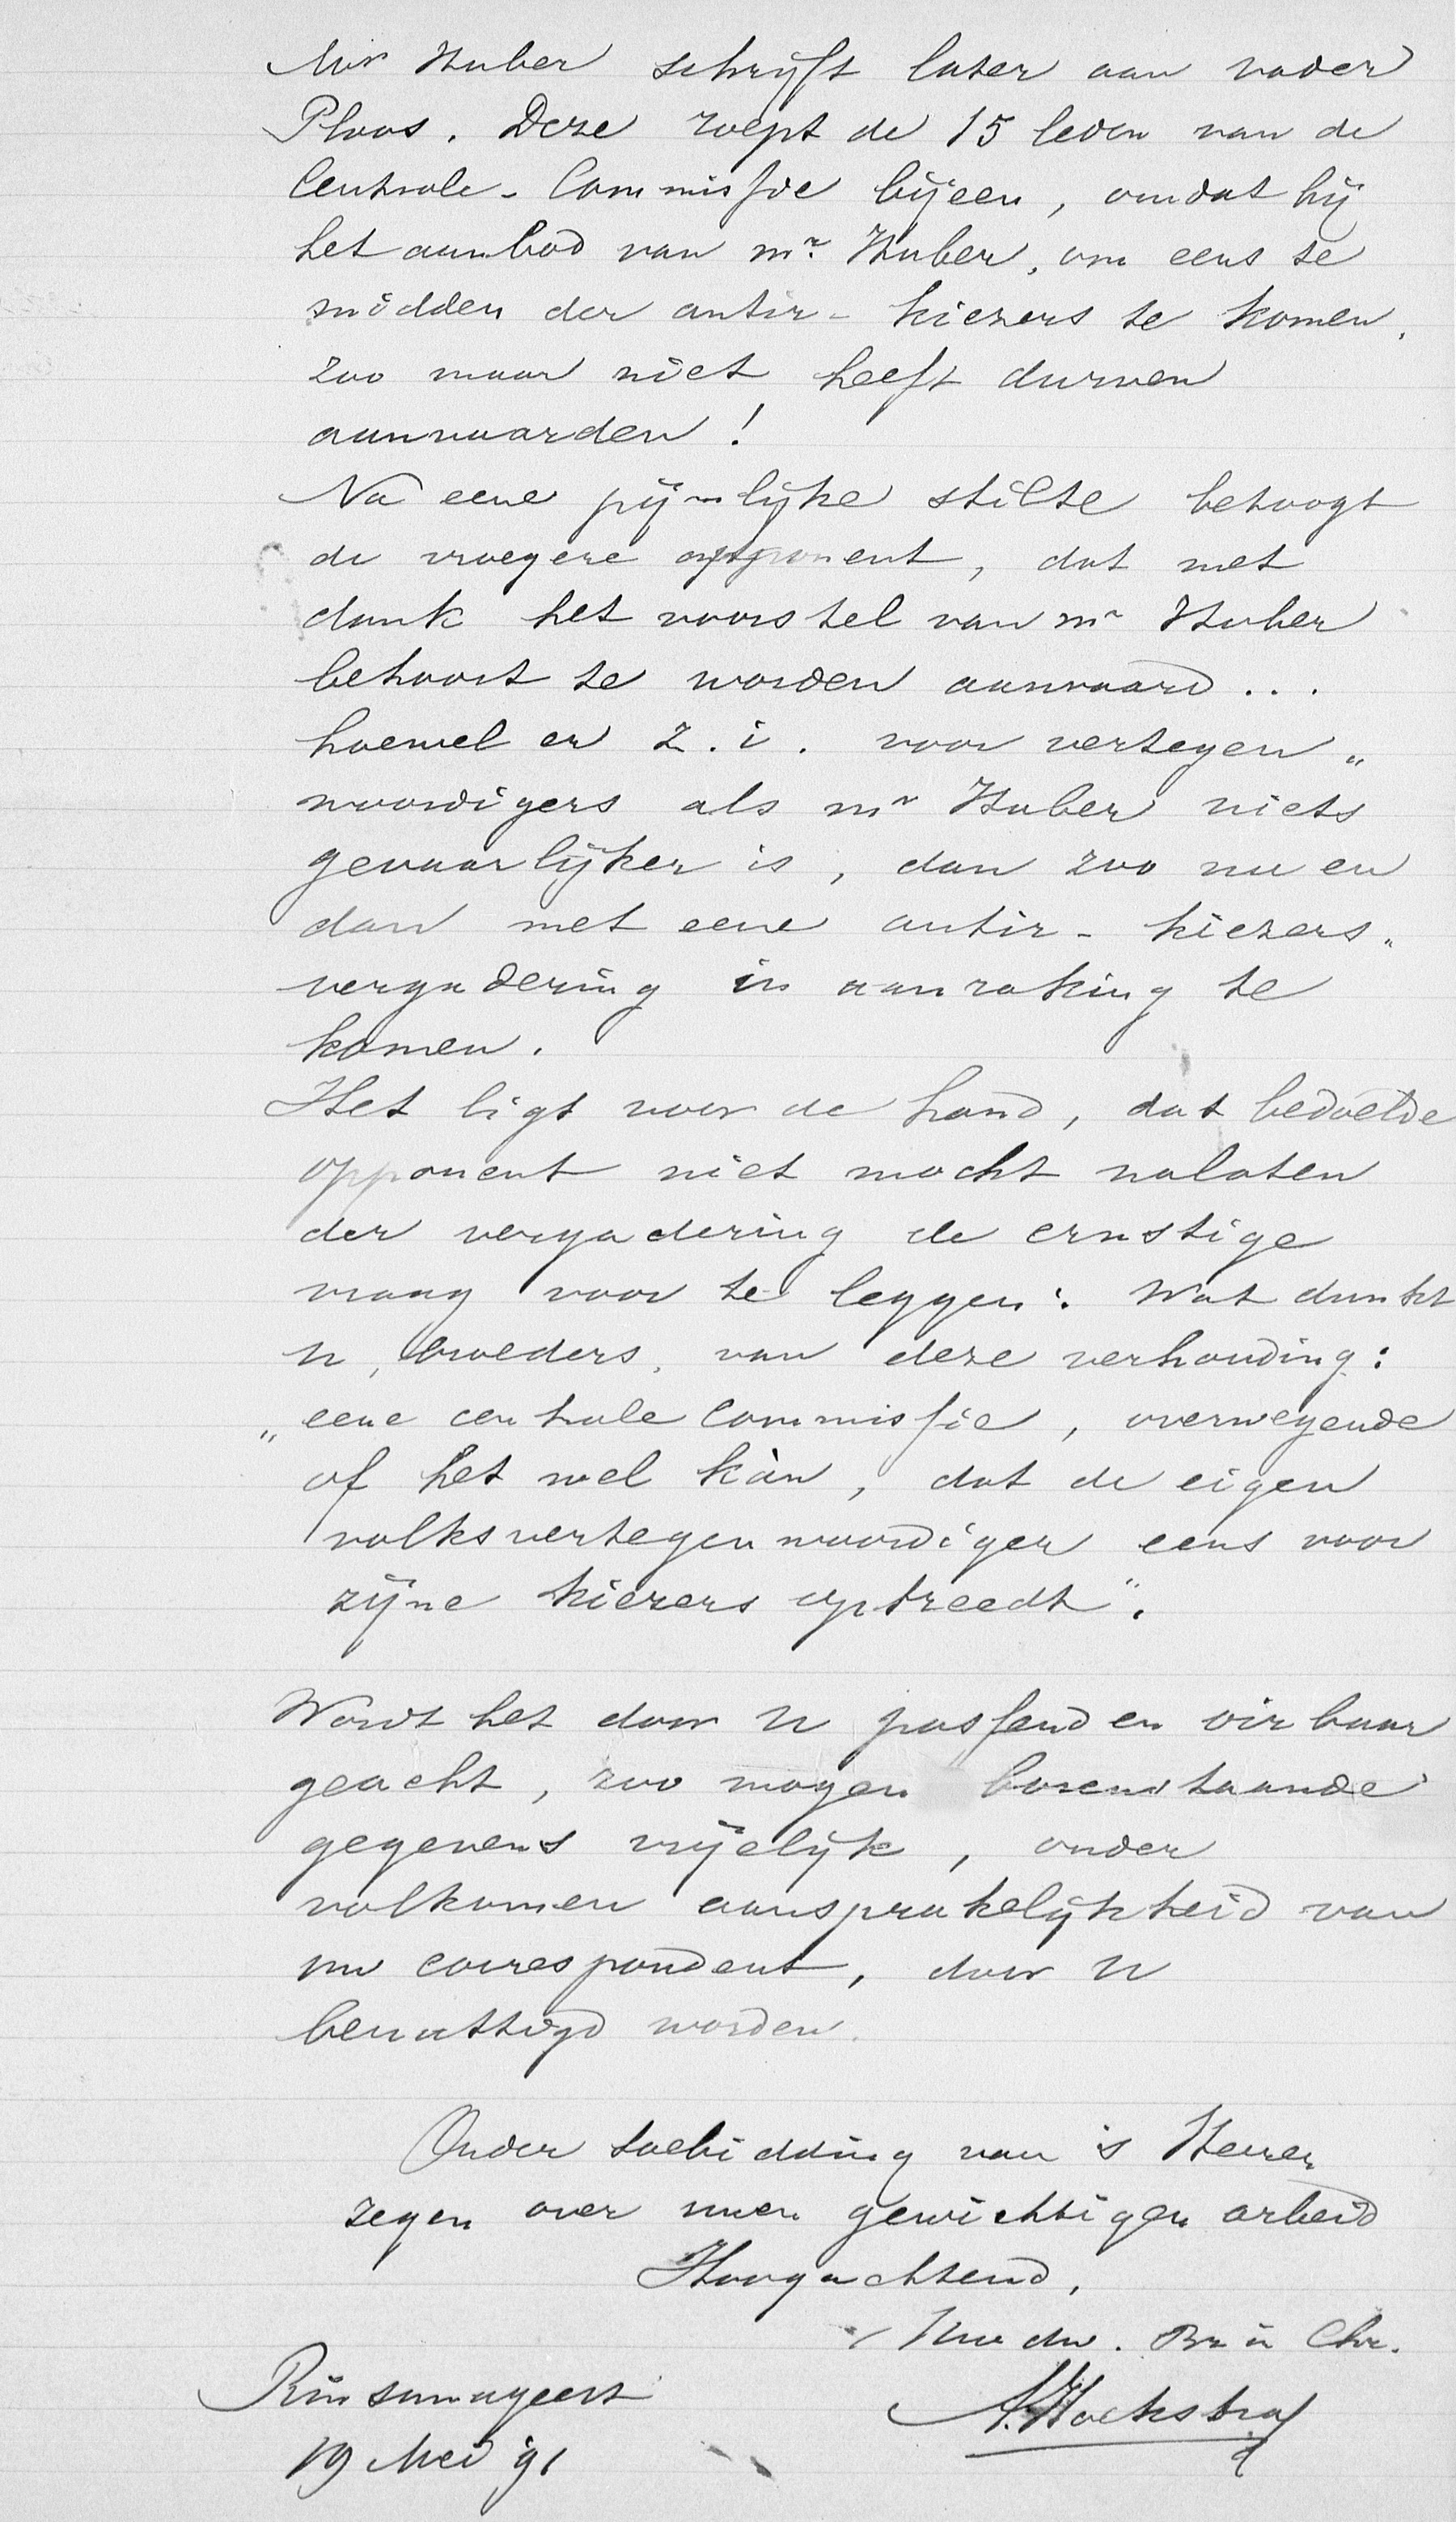 Mr Huber schrijft later aan vader
Ploos. Deze roept de 15 leden van de
Centrale-Commissie bijeen, omdat hij
het aanbod van mr. Huber, om eens te
midden der antir-kiezers te komen,
zoo maar niet heeft durven
aanvaarden!
Na eene pijnlijke stilte betoogt
de vroegere opponent, dat met
dank het voorstel van mr Huber
behoort te worden aanvaard...
hoewel er z.i. voor vertegen„
woordigers als mr Huber niets
gevaarlijker is, dan zoo nu en
dan met eene antir-kiezers„
vergadering in aanraking te
komen.
Het ligt voor de hand, dat bedoelde
opponent niet mocht nalaten
der vergadering de ernstige
vraag voor te leggen: Wat dunkt
u, broeders, van deze verhouding:
„eene centrale Commissie, overwegende
of het wel kàn, dat de eigen
volksvertegenwoordiger eens voor
zijne kiezers optreedt".
Wordt het door U passend en oirbaar
geacht, zoo mogen bovenstaande
gegevens vrijelijk, onder
volkomen aansprakelijkheid van
uw correspondent, door U
benuttigd worden.
Onder toebidding van 's Heeren
zegen over uwen gewichtigen arbeid
Hoogachtend,
Uw dw. Br in Chr.
Rinsumageest
A. Hoekstra
19 Mei '91